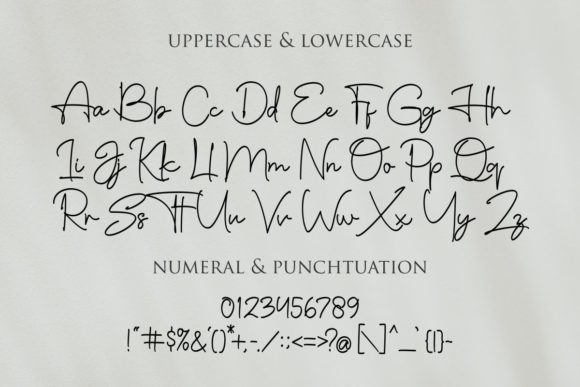 UPPERCASE & LOWERCASE
Aa Bb Cc Dd Ee Ff Gg Hh
Ii Jj Kk Ll Mm Nn Oo Pp Qq
Rr Ss Tt Uu Vv Ww Xx Yy Zz
NUMERAL & PUNCHTUATION
0123456789
!"#$%&'()*+,-./:;<=>?@[\]^_`{|}~